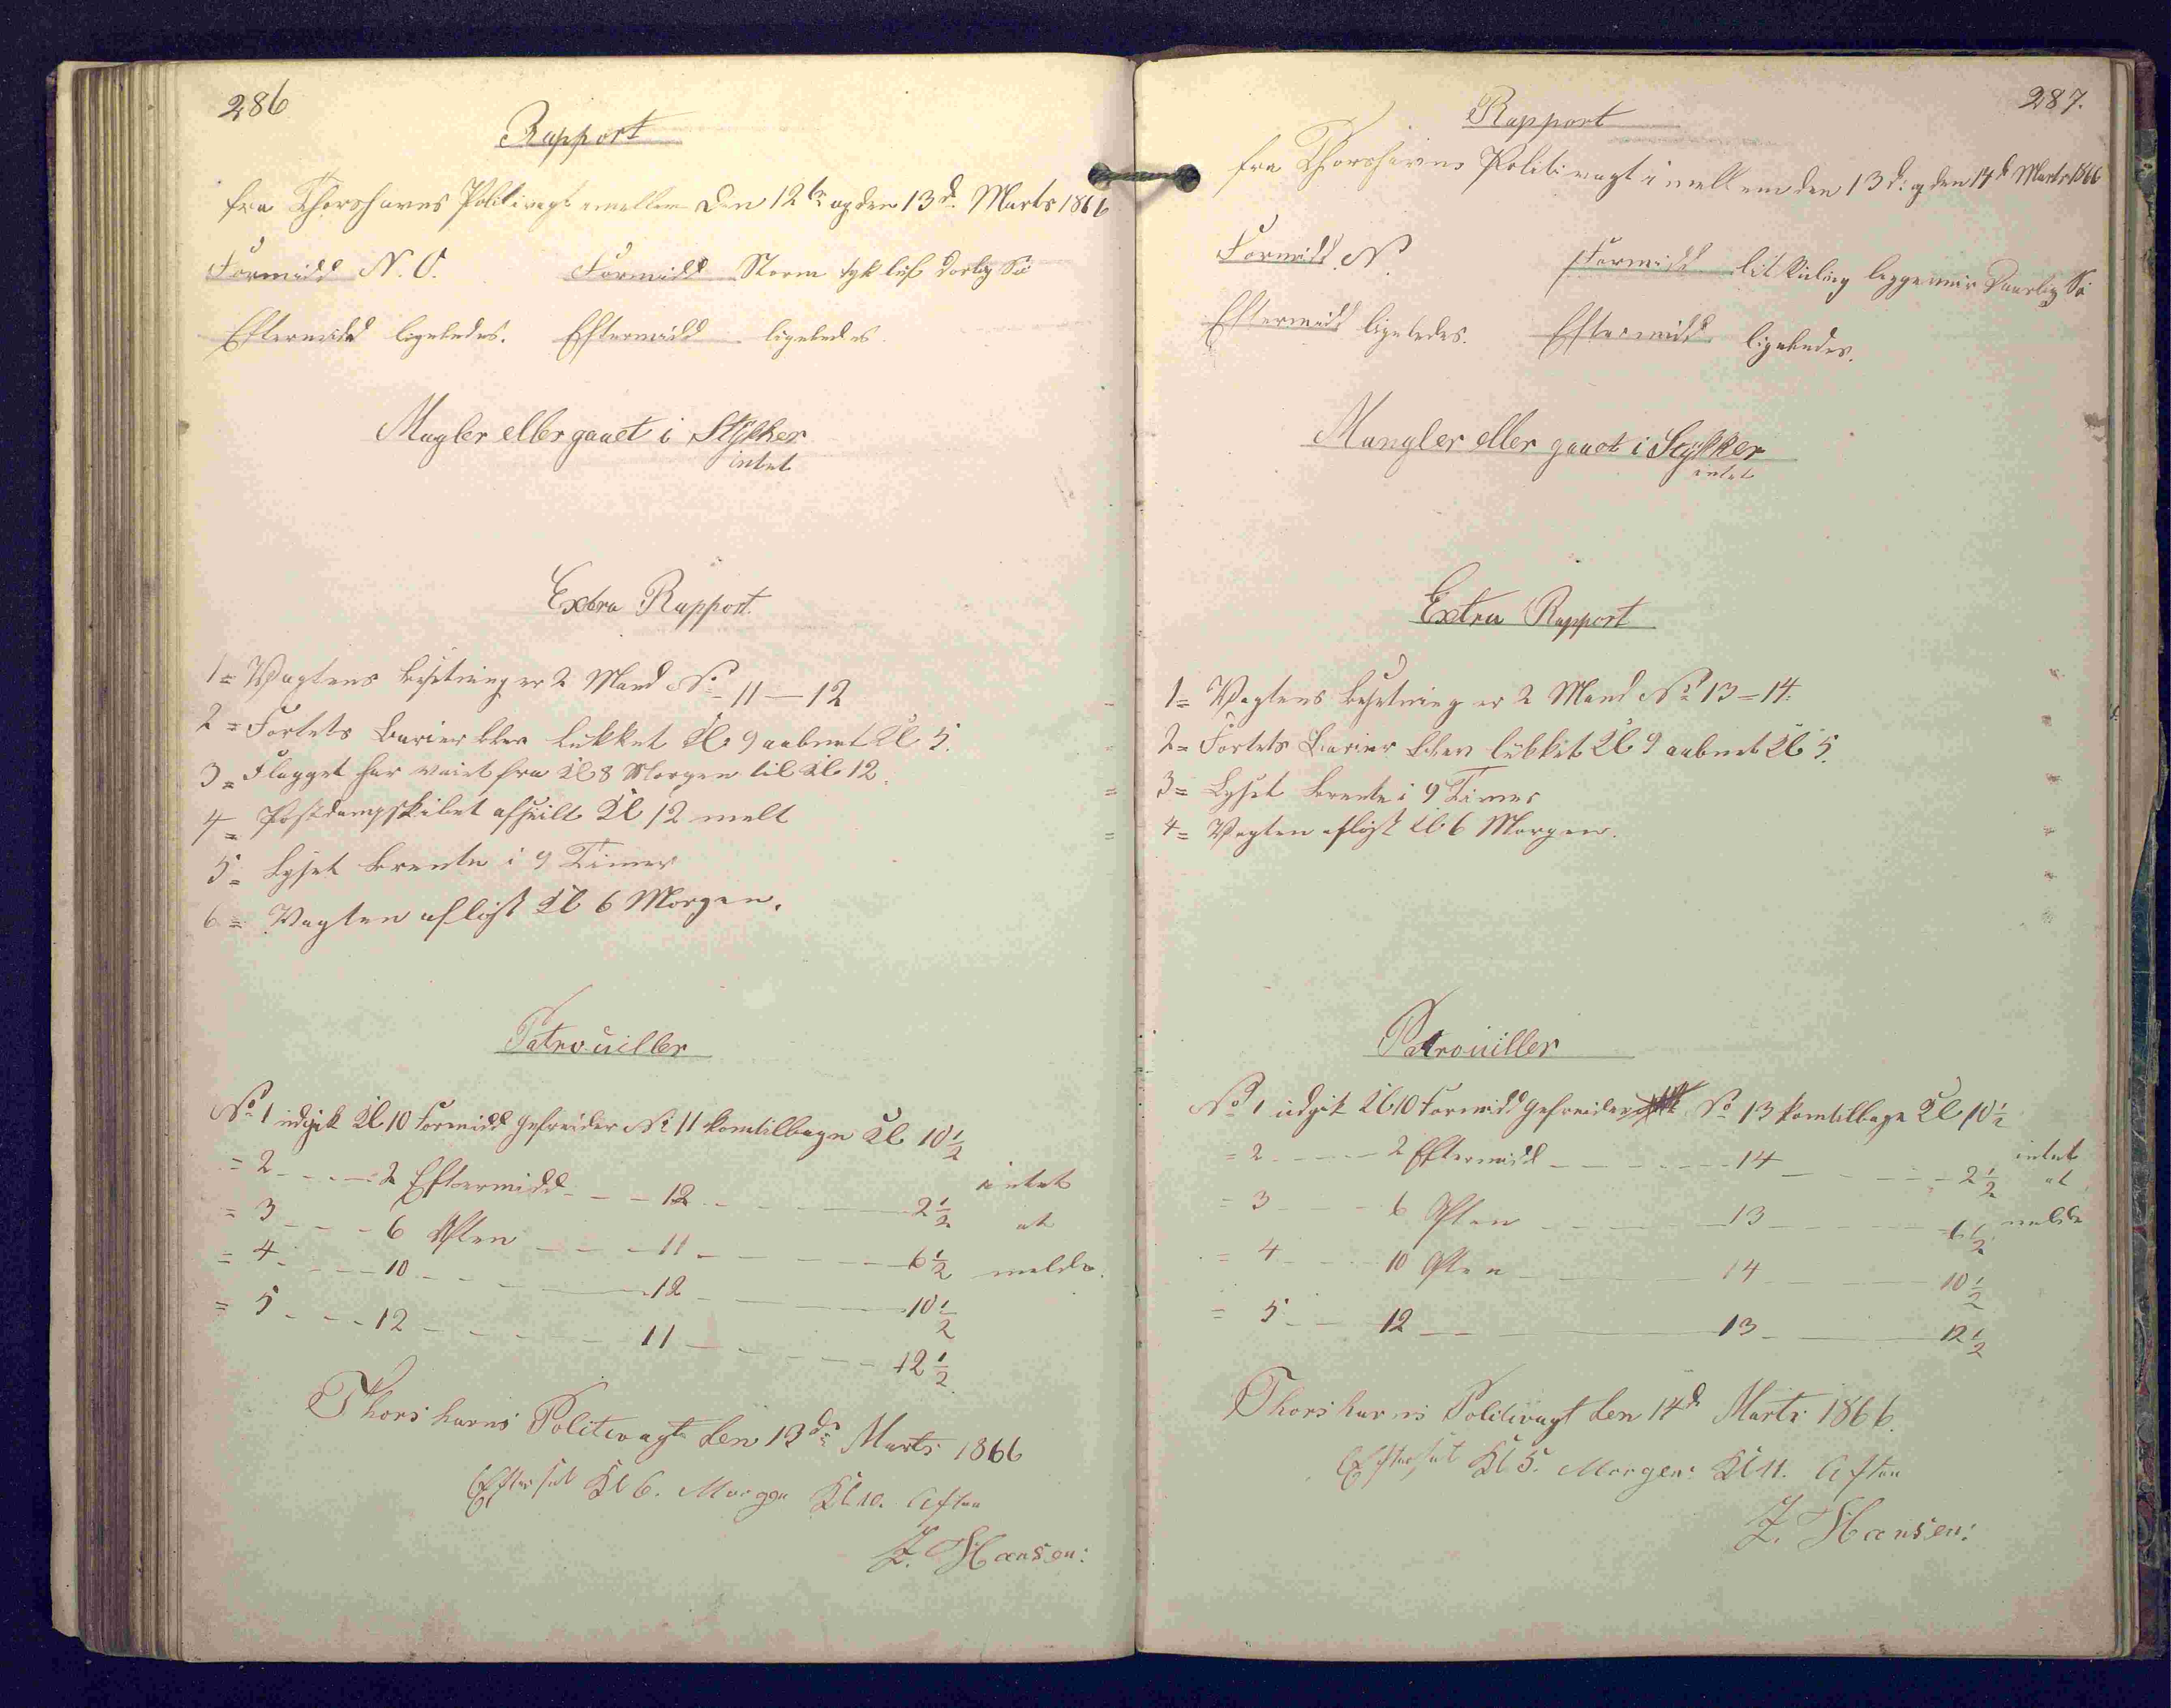 286
Rapport
fra Thorshavns Politivagt imellem den 12te og den 13d. Marts 1866
Formidd N. O. Formidd Storm tyk luft dorlig Sö
Eftermidd ligeledes. Eftermidd ligeledes
Magler eller gaaet i Stykker
intet
Extra Rapport.
1= Vagtens besetning er 2 Mand No 11 — 12
2= Fortets barier blev lukket Kl 9 aabnet Kl 5.
3= Flagget har vaiet fra Kl 8 Morgen til Kl 12.
4= Postdampskibet afseilt Kl 12 melt
5= Lyset brente i 9 Timer
6= Vagten aflöst Kl 6 Morgen.
Patrouiller
No 1 udgik Kl 10 Formidd Gefreider No 11 kom tilbage Kl 10 1/2
= 2 - - - 2 Eftermidd - - - 12 - - - 2 1/2 intet
= 3 - - - 6 Aften - - - 11 - - - 6 1/2 at
= 4 - - - 10 - - - 12 - - - 10 1/2 melde.
= 5 - - - 12 - - - 11 - - - 12 1/2
Thorshavns Politivagt den 13de Marts 1866
Eftersét Kl 6. Morgen Kl 10. Aften
Z. Hansen:
287.
Rapport
fra Thorshavns Politivagt imellem den 13d. og den 14d Marts 1866
Formidd. N. Formidd. lit Kuling Daarlig Sö
Eftermidd ligeledes. Eftermidd ligeledes.
Mangler eller gaaet i Stykker
intet
Extra Rapport
1= Vagtens besetning er 2 Mand No 13 = 14.
2= Fortets barier blev lukket Kl 9 aabnet Kl 5.
3= Lyset brente i 9 Timer
4= Vagten aflöst Kl 6 Morgen.
Patrouiller
No 1 udgik Kl 10 Formidd Gefreider No 13 kom tilbage Kl 10 1/2
= 2 - - - 2 Eftermidd - - - 14 - - - 2 1/2 intet at
= 3 - - - 6 Aften - - - 13 - - - 6 1/2 melde
= 4 - - - 10 Aften - - - 14 - - - 10 1/2
= 5 - - - 12 - - - 13 - - - 12 1/2
Thorshavns Politivagt den 14d. Marts 1866.
Eftersét Kl 5. Morgen. Kl 11. Aften
Z. Hansen: